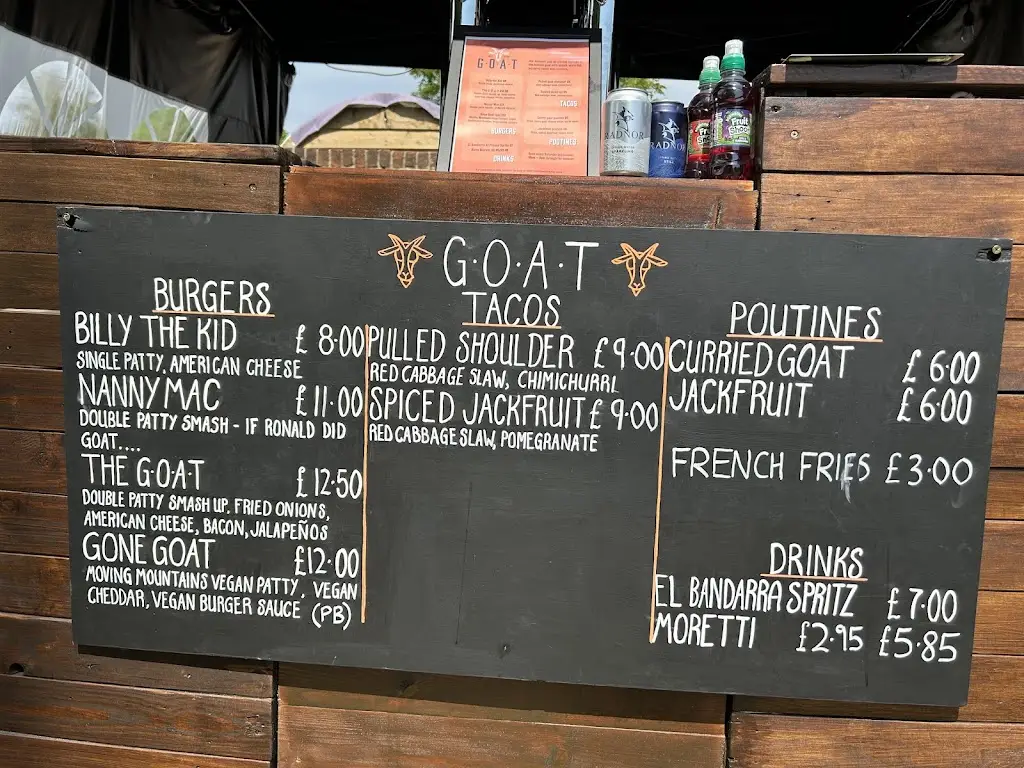 G.O.A.T
BURGERS
TACOS
POUTINES
DRINKS
RADNOR
RADNOR
Fruit
Shoot
G·O·A·T
BURGERS
BILLY THE KID £ 8·00
SINGLE PATTY, AMERICAN CHEESE
NANNY MAC £11·00
DOUBLE PATTY SMASH - IF RONALD DID
GOAT....
THE G·O·A·T £12·50
DOUBLE PATTY SMASH UP, FRIED ONIONS,
AMERICAN CHEESE, BACON, JALAPEÑOS
GONE GOAT £12·00
MOVING MOUNTAINS VEGAN PATTY, VEGAN
CHEDDAR, VEGAN BURGER SAUCE (PB)
TACOS
PULLED SHOULDER £9·00
RED CABBAGE SLAW, CHIMICHURRI
SPICED JACKFRUIT £9·00
RED CABBAGE SLAW, POMEGRANATE
POUTINES
CURRIED GOAT £6·00
JACKFRUIT £6·00
FRENCH FRIES £3·00
DRINKS
EL BANDARRA SPRITZ £7·00
MORETTI £2·95 £5·85